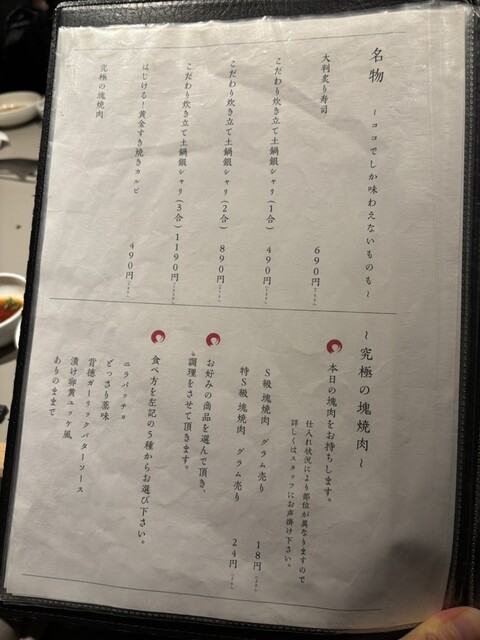 名物 ～ココでしか味わえないものも～
大判炙り寿司 690円
こだわり炊き立て土鍋銀シャリ(1合) 490円
こだわり炊き立て土鍋銀シャリ(2合) 890円
こだわり炊き立て土鍋銀シャリ(3合) 1190円
はじける！黄金すき焼きカルビ 490円
究極の塊焼肉
～究極の塊焼肉～
本日の塊肉をお持ちします。
仕入れ状況により部位が異なりますので
詳しくはスタッフにお声掛け下さい。
S級 塊焼肉 グラム売り 18円
特S級 塊焼肉 グラム売り 24円
お好みの商品を選んで頂き、
調理をさせて頂きます。
食べ方を左記の5種からお選び下さい。
ニラパッチョ
どっさり薬味
背徳ガーリックバターソース
漬け卵黄ユッケ風
ありのままで